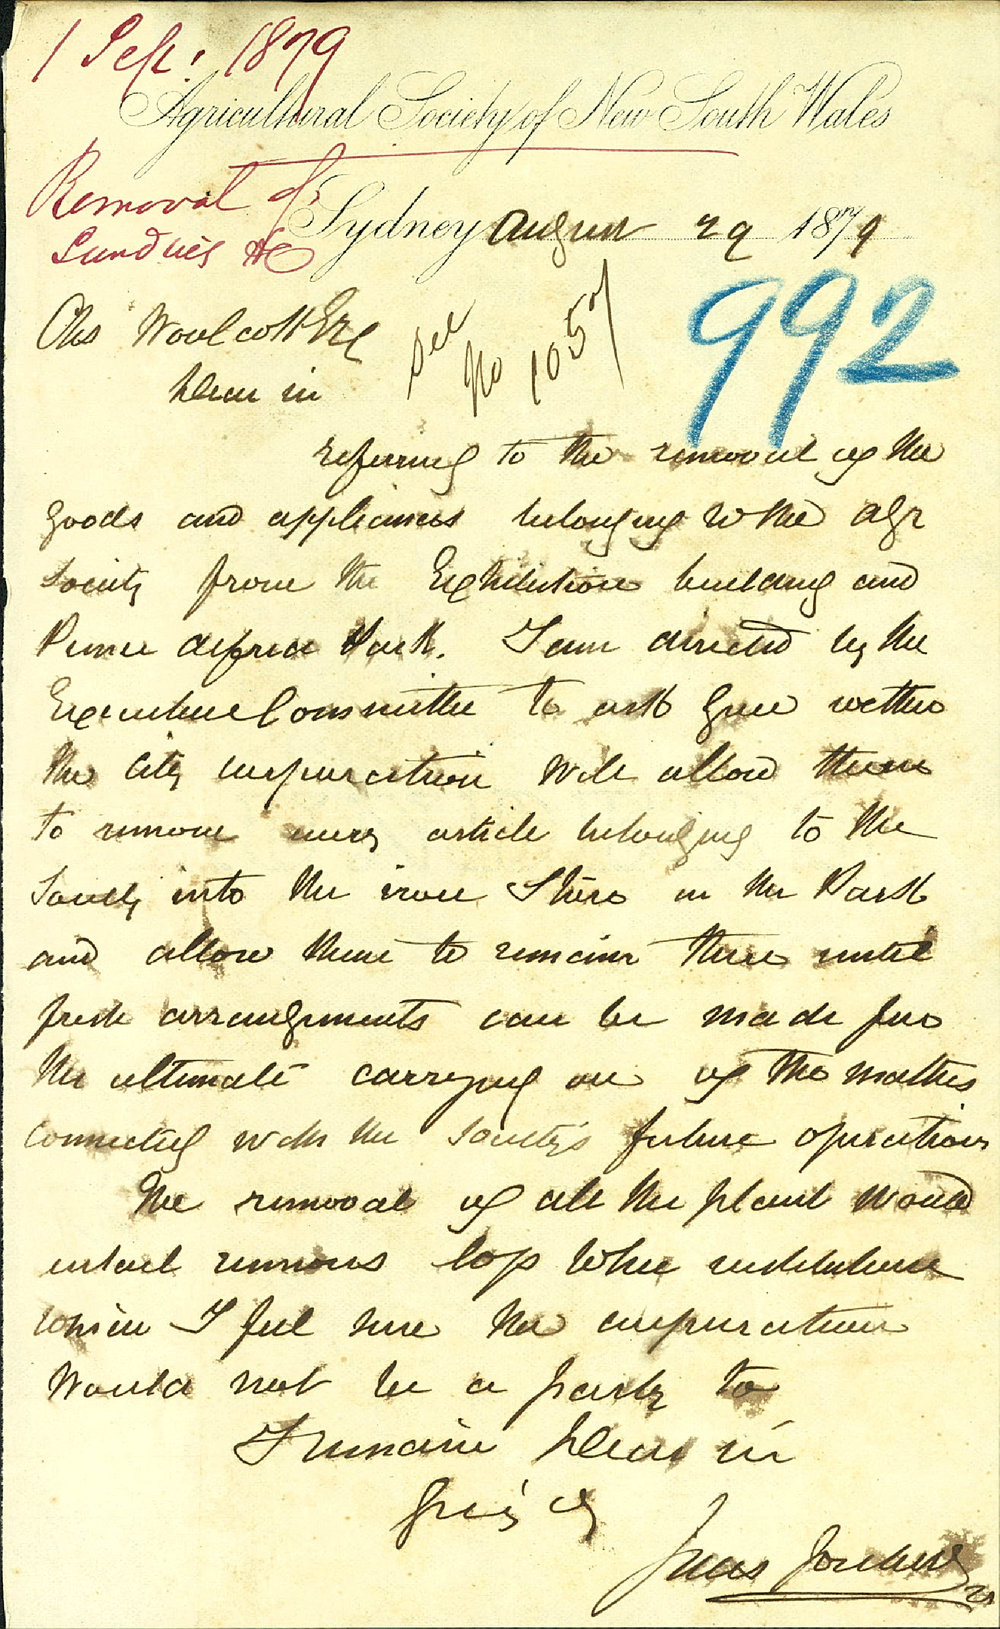 1 Sept. 1879
Agricultural Society of New South Wales
Removal of
Sundries &c
Sydney August 29 1879
Chs Woolcott Esq
See
No 1057
992
Dear Sir
referring to the removal of the
goods and appliances belonging to the Agr
Society from the Exhibition building and
Prince Alfred Park. I am directed by the
Executive Committee to ask you wether
the City Corporation will allow them
to remove every article belonging to the
Society into the iron Store in the Park
and allow them to remain there until
fresh arrangements can be made for
the ultimate carrying on of the matters
connected with the Society's future operations
The removal of all the plant would
entail ruinous loss to the institution
which I feel sure the corporation
would not be a party to
I remain Dear Sir
Yrs
Jules Joubert